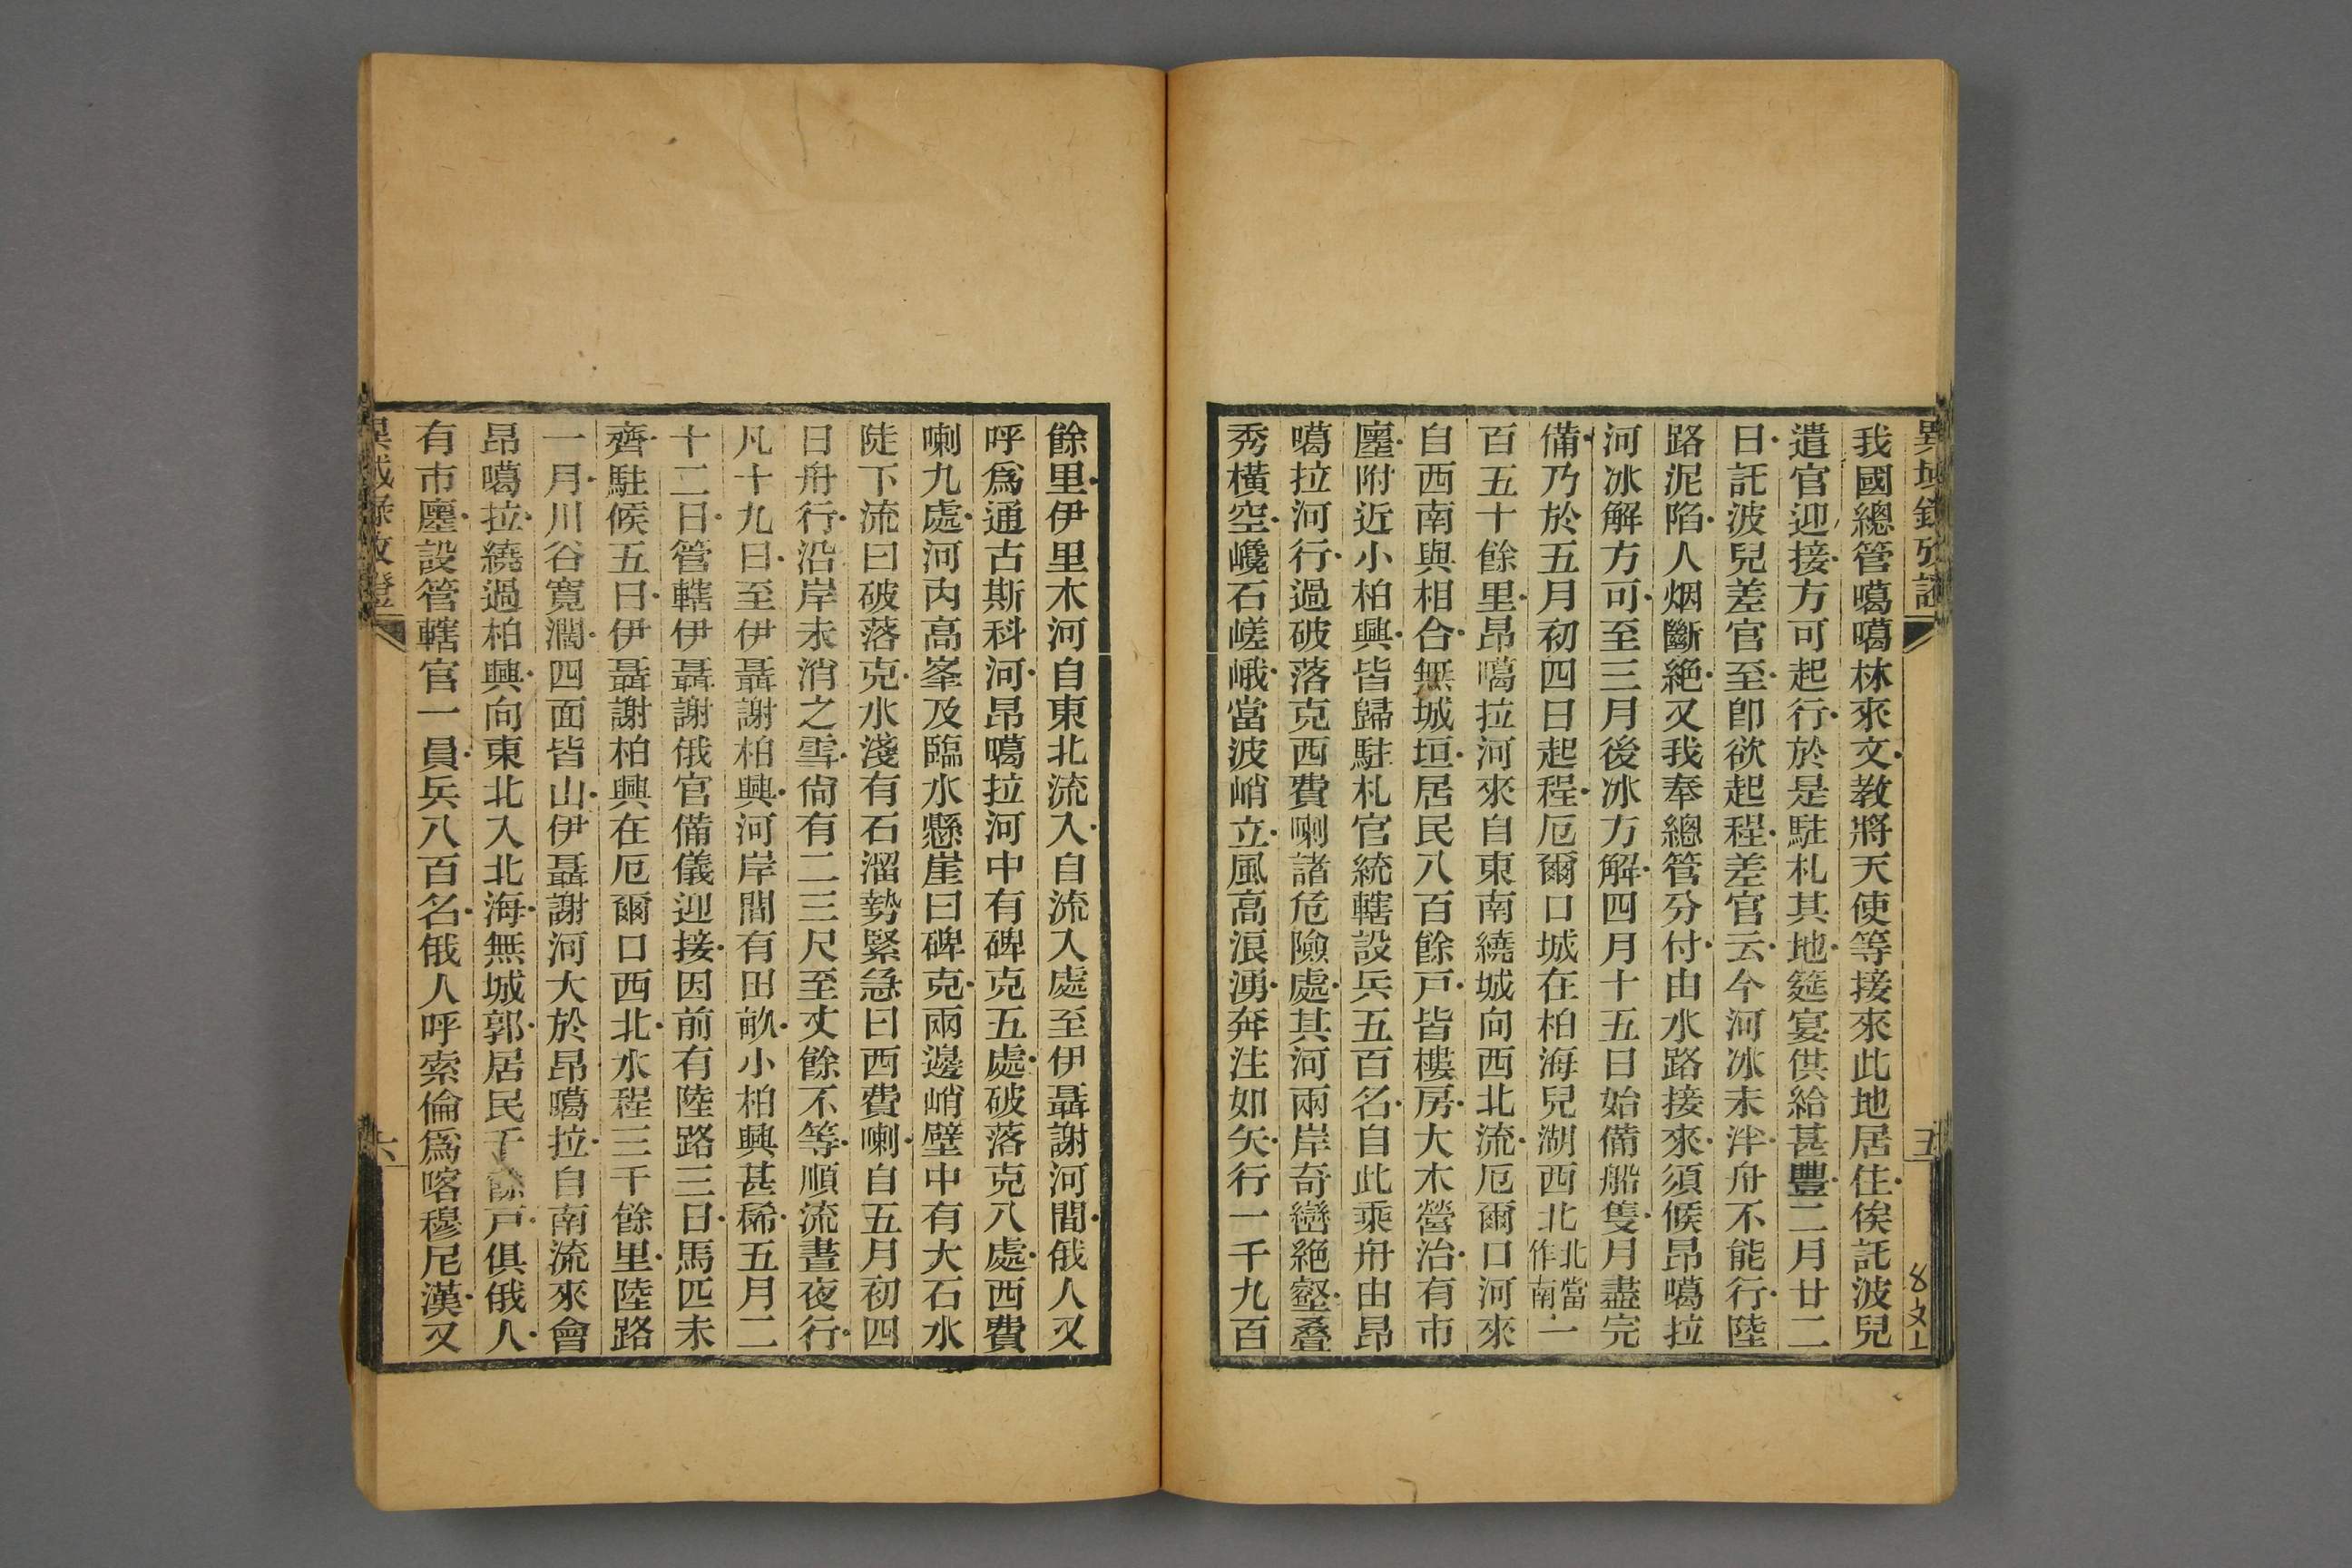 異域錄攷證
五
我國總管噶噶林來文教將天使等接來此地居住俟託波兒
遣官迎接方可起行於是駐札其地筵宴供給甚豐二月廿二
日託波兒差官至即欲起程差官云今河冰未泮舟不能行陸
路泥陷人烟斷絶又我奉總管分付由水路接來須候昂噶拉
河冰解方可至三月後冰方解四月十五日始備船隻月盡完
備乃於五月初四日起程厄爾口城在柏海兒湖西北北當作南一
百五十餘里昂噶拉河來自東南繞城向西北流厄爾口河來
自西南與相合無城垣居民八百餘戶皆樓房大木營治有市
廛附近小柏興皆歸駐札官統轄設兵五百名自此乘舟由昂
噶拉河行過破落克西費喇諸危險處其河兩岸奇巒絶壑叠
秀橫空巉石嵯峨當波峭立風高浪湧奔注如矢行一千九百
餘里伊里木河自東北流入自流入處至伊聶謝河間俄人又
呼爲通古斯科河昂噶拉河中有碑克五處破落克八處西費
喇九處河內高峯及臨水懸崖曰碑克兩邊峭壁中有大石水
陡下流曰破落克水淺有石溜勢緊急曰西費喇自五月初四
日舟行沿岸未消之雪尙有二三尺至丈餘不等順流晝夜行
凡十九日至伊聶謝柏興河岸間有田畝小柏興甚稀五月二
十二日管轄伊聶謝俄官備儀迎接因前有陸路三日馬匹未
齊駐候五日伊聶謝柏興在厄爾口西北水程三千餘里陸路
一月川谷寬濶四面皆山伊聶謝河大於昂噶拉自南流來會
昂噶拉繞過柏興向東北入北海無城郭居民千餘戶俱俄人
有市廛設管轄官一員兵八百名俄人呼索倫爲喀穆尼漢又
異域錄攷證
六